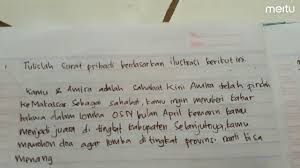 mertu
1. Tulislah surat pribadi berdasarkan ilustrasi berikut ini.
Kamu & Amira adalah sahabat Kini Amira telah pindah
ke Makassar Sebagai sahabat, kamu ingin memberi kabar
bahwa dalam lomba OSN bulan April kemarin kamu
menjadi juara di tingkat kabupaten Selanjutnya, kamu
memohon doa agar lomba di tingkat provinsi nanti bisa
menang